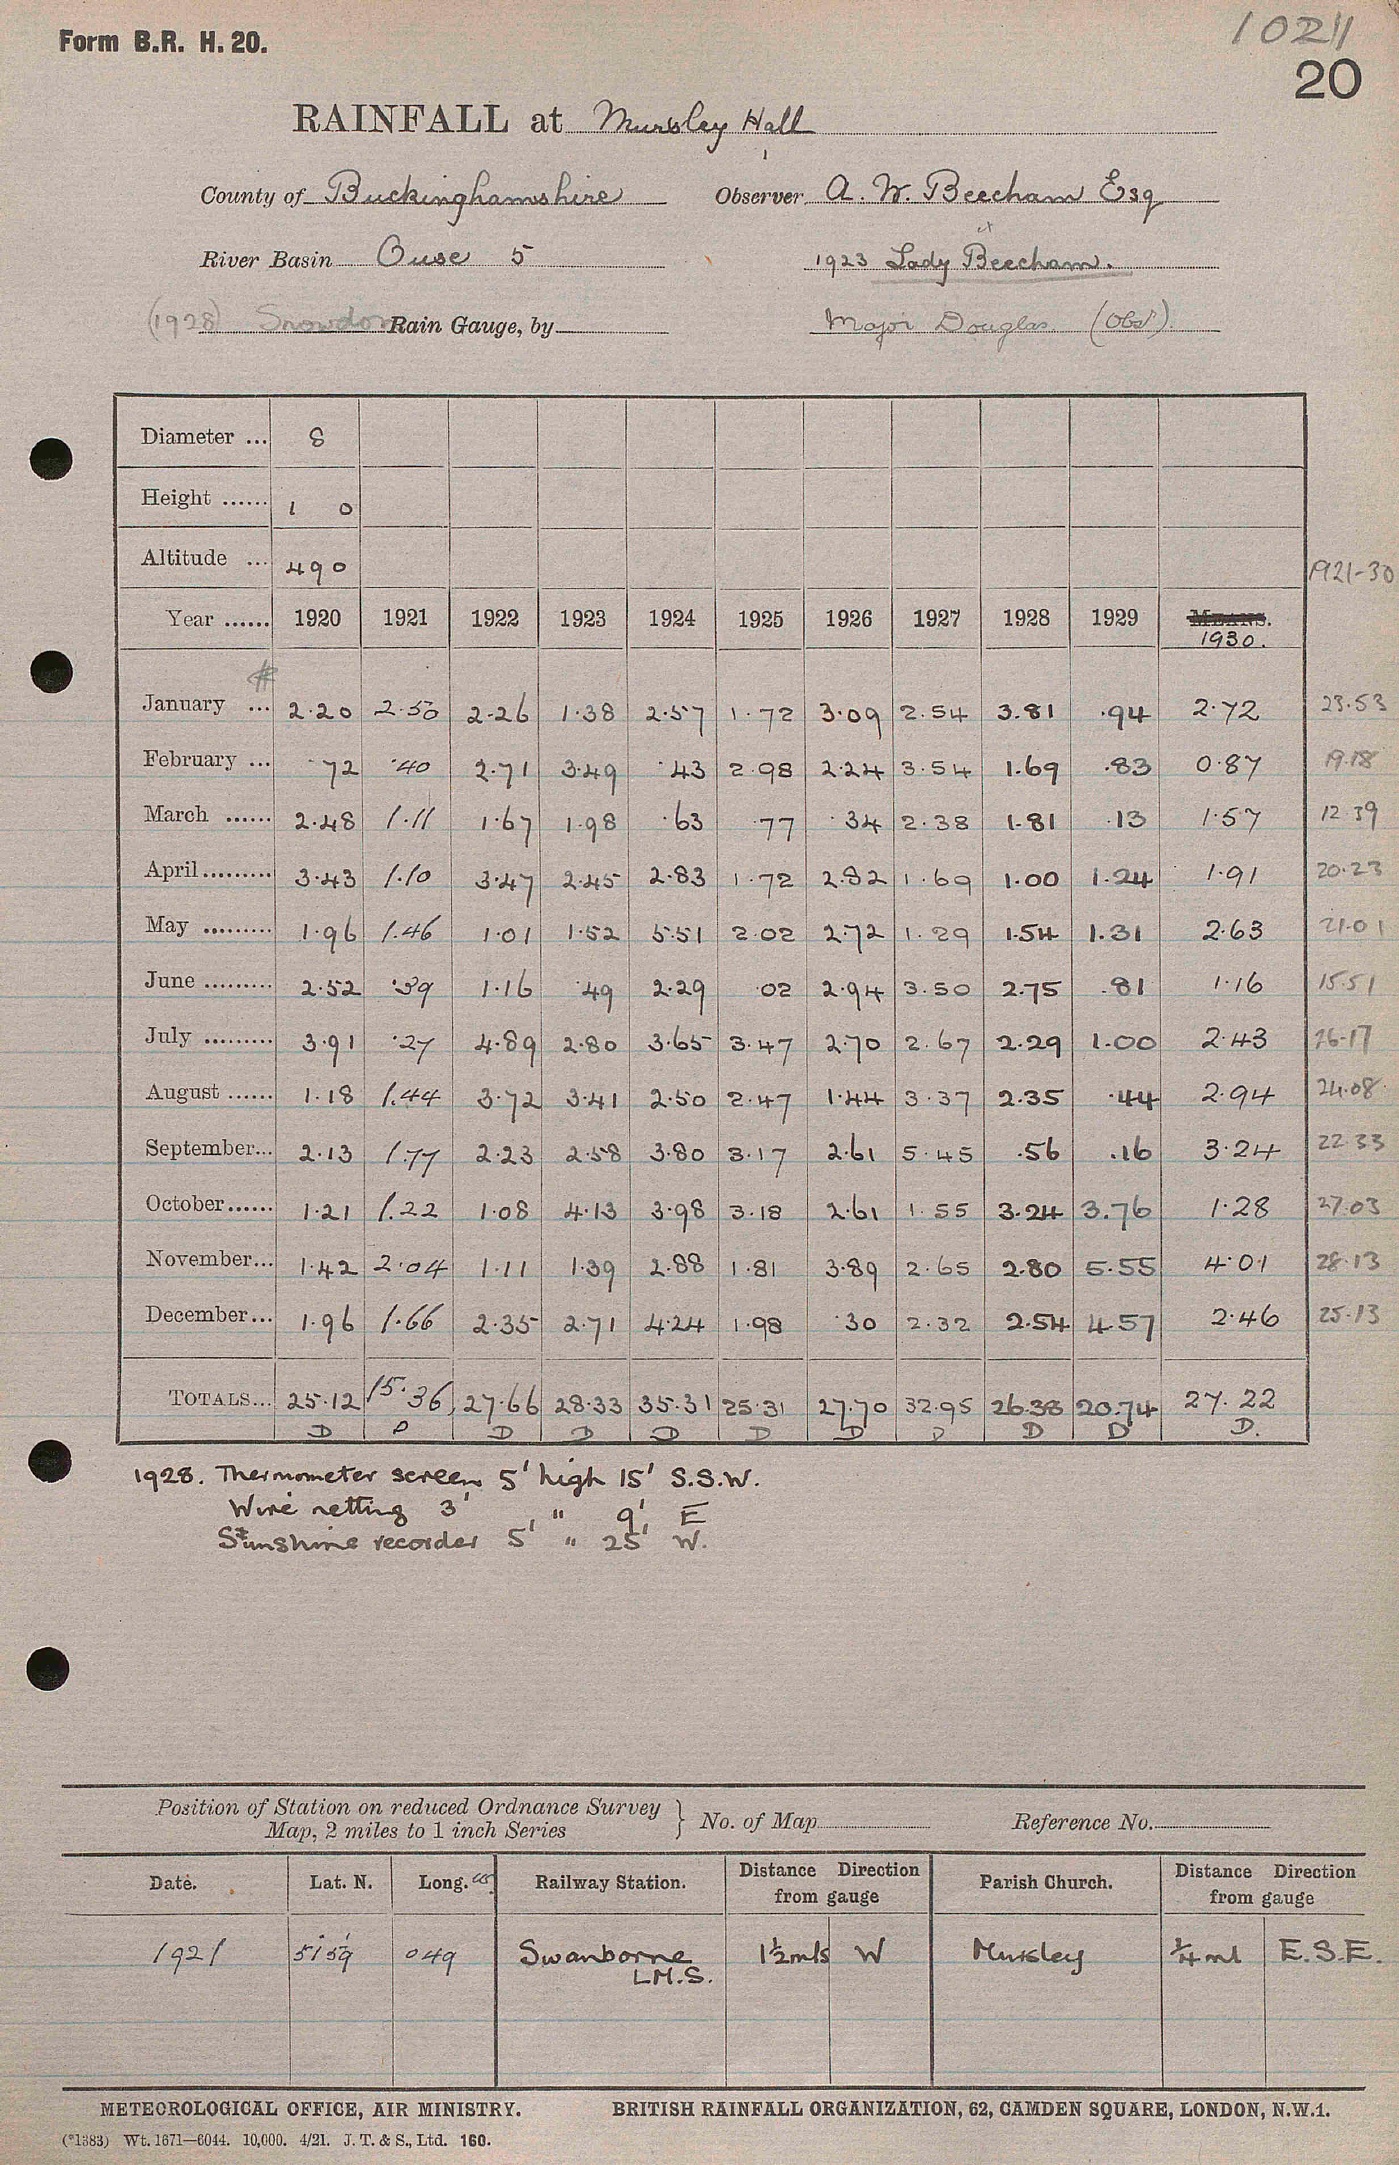 Form B.R. H. 20.
10211
20
RAINFALL at Mursley Hall
County of Buckinghamshire Observer A. W. Beecham Esq
River Basin Ouse 5 1923 Lady Beecham.
(1928) Snowdon Rain Gauge, by Major Douglas (Obsr).
Diameter ... 8
Height ...... 1 0
Altitude ... 490
1921-30
Year ...... 1920 1921 1922 1923 1924 1925 1926 1927 1928 1929 MEANS.
1930.
January ... 2.20 2.50 2.26 1.38 2.57 1.72 3.09 2.54 3.81 .94 2.72 23.53
February ... .72 .40 2.71 3.49 .43 2.98 2.24 3.54 1.69 .83 0.87 19.18
March ...... 2.48 1.11 1.67 1.98 .63 .77 .34 2.38 1.81 .13 1.57 12.39
April ......... 3.43 1.10 3.47 2.45 2.83 1.72 2.82 1.69 1.00 1.24 1.91 20.23
May ......... 1.96 1.46 1.01 1.52 5.51 2.02 2.72 1.29 1.54 1.31 2.63 21.01
June ......... 2.52 .39 1.16 .49 2.29 .02 2.94 3.50 2.75 .81 1.16 15.51
July ......... 3.91 .27 4.89 2.80 3.65 3.47 2.70 2.67 2.29 1.00 2.43 26.17
August ...... 1.18 1.44 3.72 3.41 2.50 2.47 1.44 3.37 2.35 .44 2.94 24.08
September... 2.13 1.77 2.23 2.58 3.80 3.17 2.61 5.45 .56 .16 3.24 22.33
October...... 1.21 1.22 1.08 4.13 3.98 3.18 2.61 1.55 3.24 3.76 1.28 27.03
November... 1.42 2.04 1.11 1.39 2.88 1.81 3.89 2.65 2.80 5.55 4.01 28.13
December... 1.96 1.66 2.35 2.71 4.24 1.98 .30 2.32 2.54 4.57 2.46 25.13
TOTALS... 25.12 15.36 27.66 28.33 35.31 25.31 27.70 32.95 26.38 20.74 27.22
D D D D D D D D D D D.
1928. Thermometer screen 5' high 15' S.S.W.
Wire netting 3' " 9' E
Sunshine recorder 5' " 25' W.
Position of Station on reduced Ordnance Survey
Map, 2 miles to 1 inch Series } No. of Map Reference No.
Date. Lat. N. Long. W Railway Station. Distance Direction from gauge Parish Church. Distance Direction from gauge
1921 51 59 0 49 Swanborne 1½ mls W Mursley ¼ ml E.S.E.
L.M.S.
METEOROLOGICAL OFFICE, AIR MINISTRY. BRITISH RAINFALL ORGANIZATION, 62, CAMDEN SQUARE, LONDON, N.W.1.
(*1383) Wt. 1671—6044. 10,000. 4/21. J. T. & S., Ltd. 160.